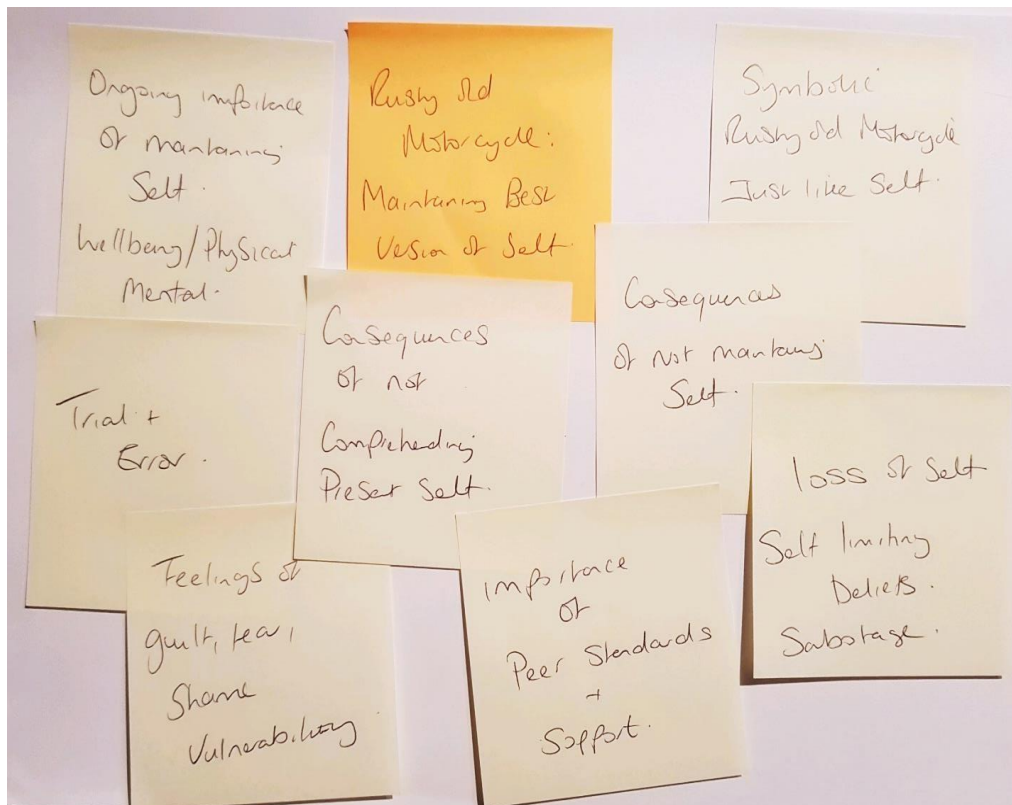 Ongoing importance
of mantaning
Self.
Wellbeing/Physical
Mental.
Rusty old
Motorcycle:
Maintaining Best
Version of Self.
Symbolic
Rusty old Motorcycle
Just like Self.
Trial +
Error.
Consequences
of not
Comprehending
Present Self.
Consequences
of not mantaning
Self.
Feelings of
guilt, fear,
Shame
Vulnerability
importance
of
Peer Standards
+
Support.
loss of Self
Self limiting
Beliefs.
Sabotage.